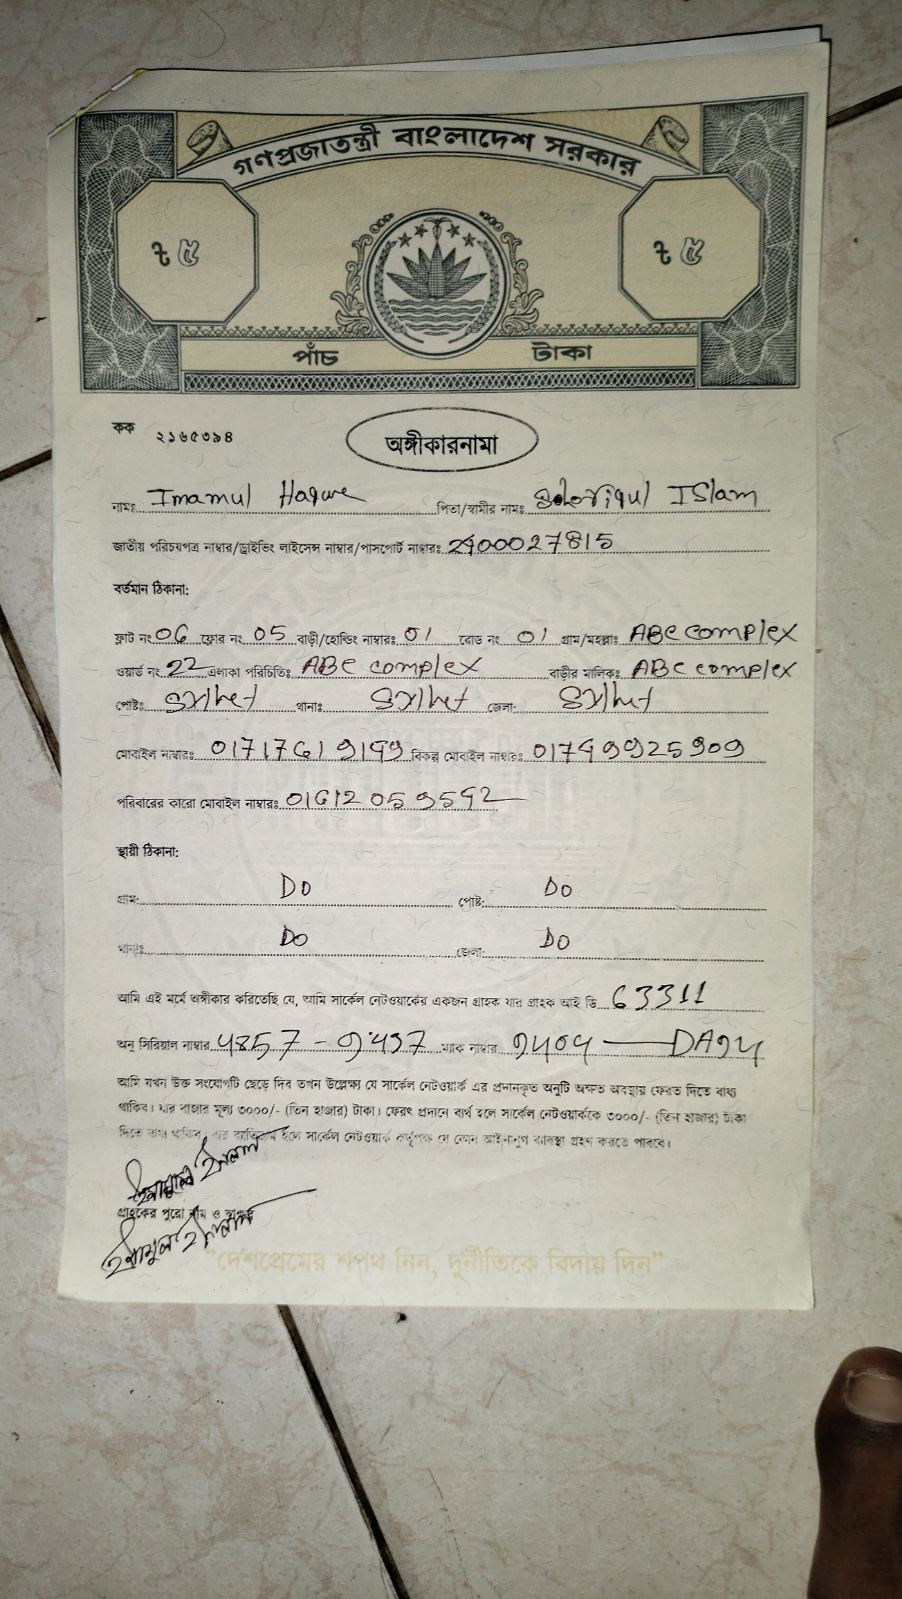 গণপ্রজাতন্ত্রী বাংলাদেশ সরকার
৳ ৫ ৳ ৫
পাঁচ টাকা
কক ২১৬৫৩৯৪
অঙ্গীকারনামা
নামঃ Imamul Haque পিতা/স্বামীর নামঃ Islam
জাতীয় পরিচয়পত্র নাম্বার/ড্রাইভিং লাইসেন্স নাম্বার/পাসপোর্ট নাম্বারঃ 2400027815
বর্তমান ঠিকানা:
ফ্লাট নং 06 ফ্লোর নং 05 বাড়ী/হোল্ডিং নাম্বারঃ 01 রোড নং 01 গ্রাম/মহল্লাঃ ABC complex
ওয়ার্ড নং 22 এলাকা পরিচিতিঃ ABC complex বাড়ীর মালিকঃ ABC complex
পোষ্টঃ Sylhet থানাঃ Sylhet জেলা: Sylhet
মোবাইল নাম্বারঃ বিকল্প মোবাইল নাম্বারঃ
পরিবারের কারো মোবাইল নাম্বারঃ
স্থায়ী ঠিকানা:
গ্রাম: DO পোষ্ট: DO
থানাঃ DO জেলা: DO
আমি এই মর্মে অঙ্গীকার করিতেছি যে, আমি সার্কেল নেটওয়ার্কের একজন গ্রাহক যার গ্রাহক আই ডি 63311
অনু সিরিয়াল নাম্বার ম্যাক নাম্বার
আমি যখন উক্ত সংযোগটি ছেড়ে দিব তখন উল্লেক্ষ্য যে সার্কেল নেটওয়ার্ক এর প্রদানকৃত অনুটি অক্ষত অবস্থায় ফেরত দিতে বাধ্য
থাকিব। যার বাজার মূল্য ৩০০০/- (তিন হাজার) টাকা। ফেরৎ প্রদানে ব্যর্থ হলে সার্কেল নেটওয়ার্ককে ৩০০০/- (তিন হাজার) টাকা
দিতে বাধ্য থাকিব। এর ব্যতিক্রম হলে সার্কেল নেটওয়ার্ক কর্তৃপক্ষ যে কোন আইনানুগ ব্যবস্থা গ্রহণ করতে পারবে।
গ্রাহকের পুরো নাম ও স্বাক্ষর
"দেশপ্রেমের শপথ নিন, দুর্নীতিকে বিদায় দিন"